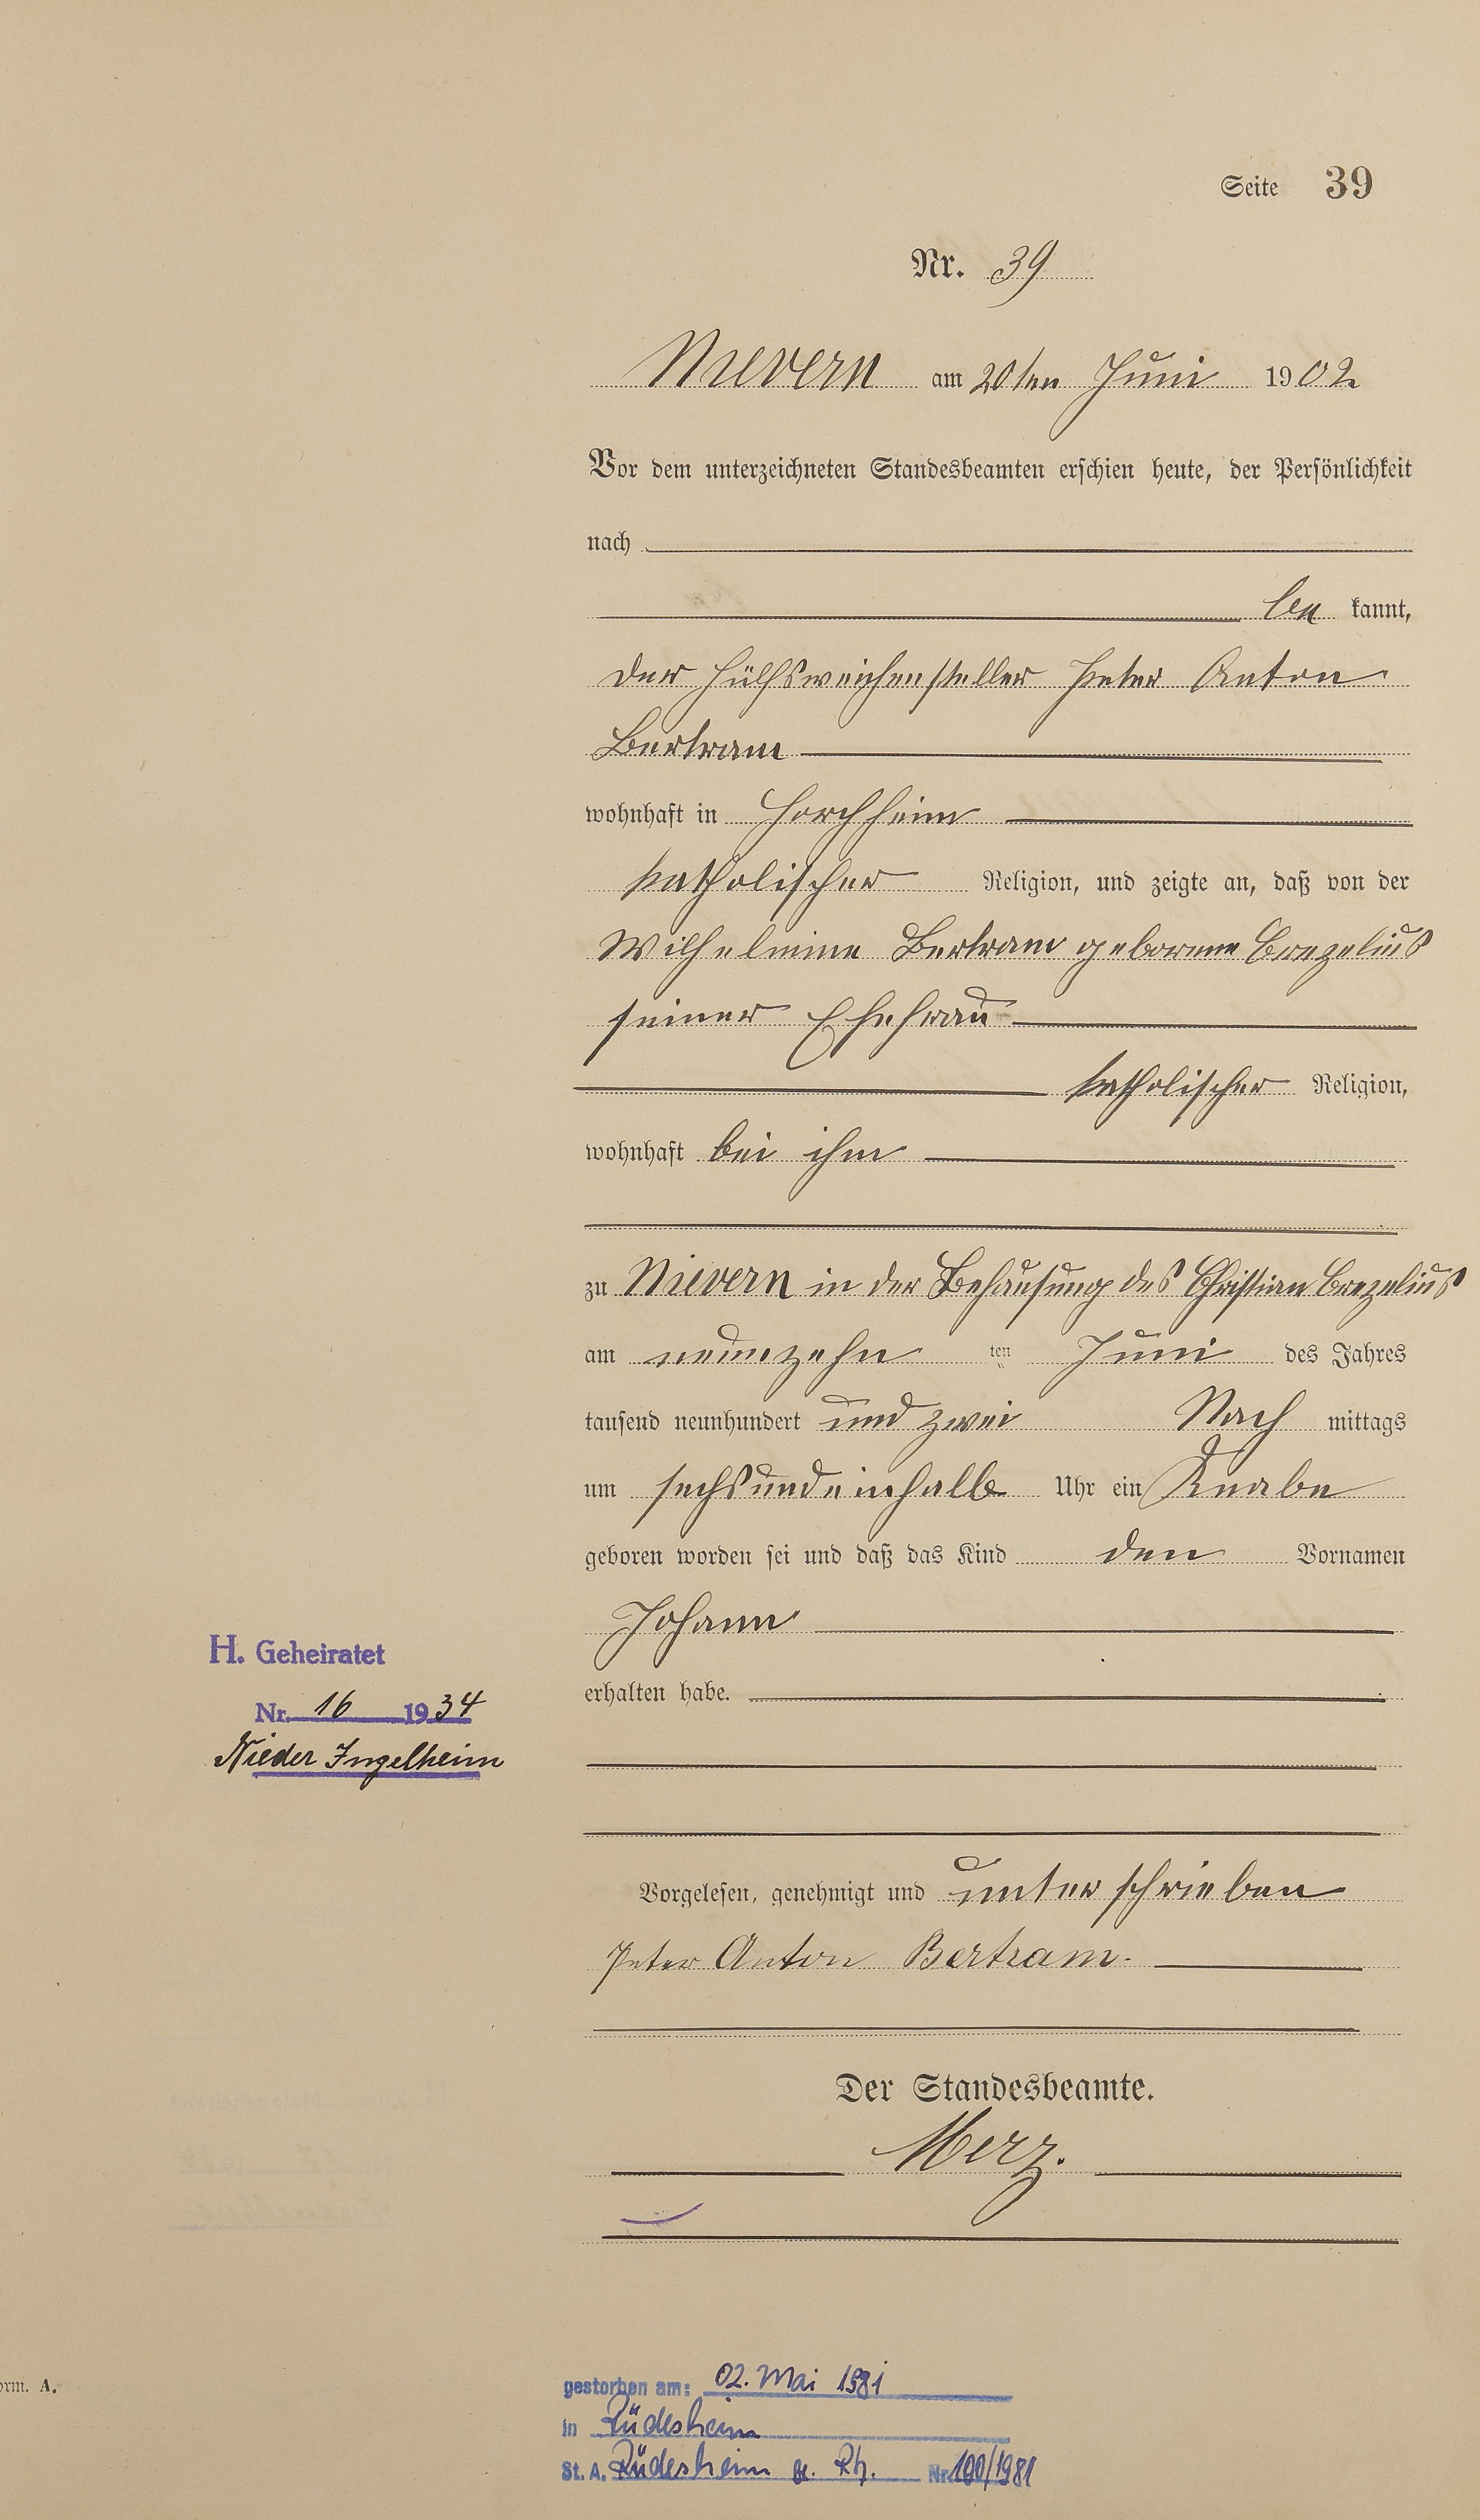 Seite 39
Nr. 39
Nievern am 20ten Juni 1902
Vor dem unterzeichneten Standesbeamten erschien heute, der Persönlichkeit
nach
be kannt,
der Hülfsweichensteller Peter Anton
Bertram
wohnhaft in Horchheim
katholischer Religion, und zeigte an, daß von der
Wilhelmine Bertram geborene Crezelius
seiner Ehefrau
katholischer Religion,
wohnhaft bei ihm
zu Nievern in der Behausung des Christian Crezelius
am neunzehn ten Juni des Jahres
tausend neunhundert und zwei Nach mittags
um sechsundeinhalb Uhr ein Knabe
geboren worden sei und daß das Kind den Vornamen
Johann
H. Geheiratet
erhalten habe.
Nr. 16 1934
Nieder Ingelheim
Vorgelesen, genehmigt und unterschrieben
Peter Anton Bertram.
Der Standesbeamte.
Merz.
orm. A.
gestorben am: 02. Mai 1981
in Rüdesheim
St. A. Rüdesheim a. Rh. Nr. 100/1981